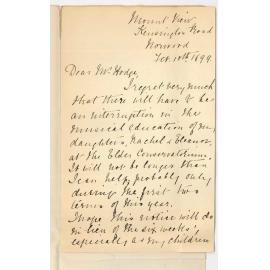 Mount View
Kensington Road
Norwood
Feb. 10th 1899
Dear Mr Hodge,
I regret very much
that there will have to be
an interruption in the
musical education of my
daughters, Rachel & Eleanor,
at the Elder Conservatorium.
It will not be longer than
I can help, probably only
during the first two
terms of this year.
I hope this notice will do
in lieu of the six weeks',
especially as my children